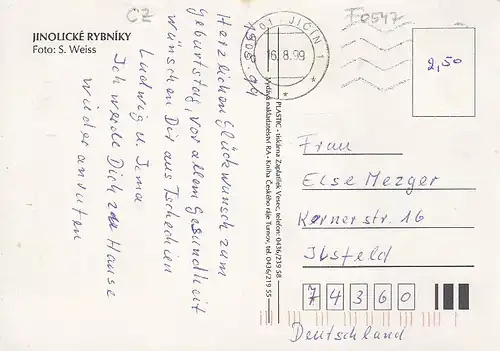 CZ
F0547
JINOLICKÉ RYBNÍKY
Foto: S. Weiss
01 JIČÍN 1
16.8.99
2,50
Herzlichen Glückwunsch zum
Geburtstag vor allem Gesundheit
wünschen Dir aus Tschechien
Ludwig u. Irma
Ich werde Dich zu Hause
wieder anrufen
PLASTIC - tiskárna Zaplatílek Vesec, telefon: 0436/239 58
Vydává nakladatelství RA - Kniha Českého ráje Turnov, tel. 0436/219 55
Frau
Else Mezger
Kernerstr. 16
Ilsfeld
74360
Deutschland